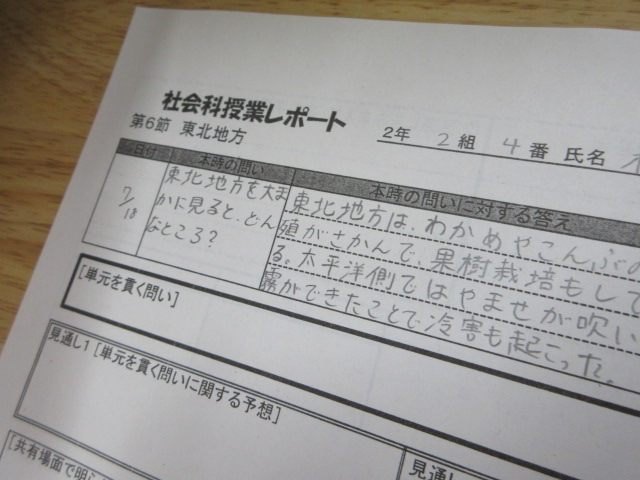 社会科授業レポート
第6節 東北地方
2年 2 組 4 番 氏名
日付 本時の問い 本時の問いに対する答え
7/18
東北地方を大ま
かに見ると、どん
なところ?
東北地方は、わかめやこんぶの
殖がさかんで、果樹栽培もして
る。太平洋側ではやませが吹い
霧ができたことで冷害も起こった。
[単元を貫く問い]
見通し1 [単元を貫く問いに関する予想]
見通し
[共有場面で明ら